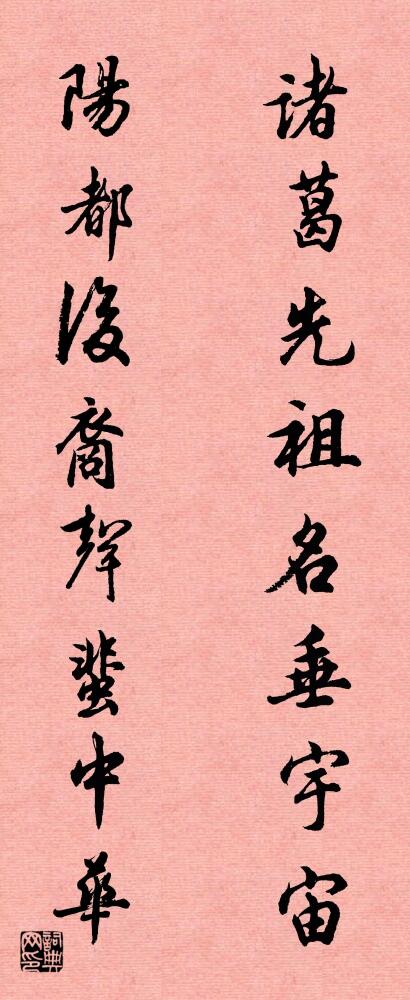 諸葛先祖名垂宇宙
陽都後裔聲蜚中華
詞典网印